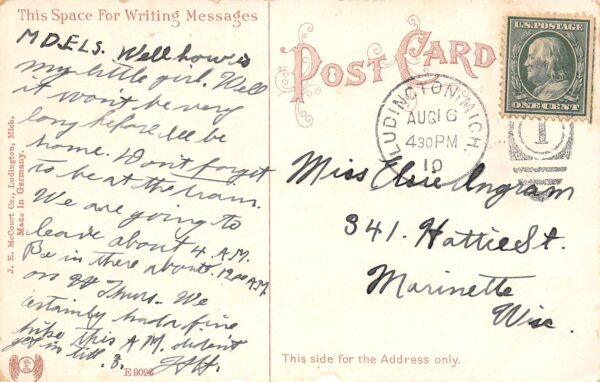 This Space For Writing Messages
M D.E.L.S. Well how is
my little girl. Well
it won't be very
long before I'll be
home. Don't forget
to be at the train.
We are going to
leave about 4 A.M.
Be in there about 12:00 A.M.
on Thurs. We
certainly had a fine
hike this A.M. didn't
get in till 8.
J. E. McCourt Co., Ludington, Mich.
Made in Germany.
E 9096
POST CARD
U.S. POSTAGE
ONE CENT
LUDINGTON, MICH.
AUG 16
430 PM
10
1
Miss Elsie Ingram
341. Hattie St.
Marinette
Wisc.
This side for the Address only.